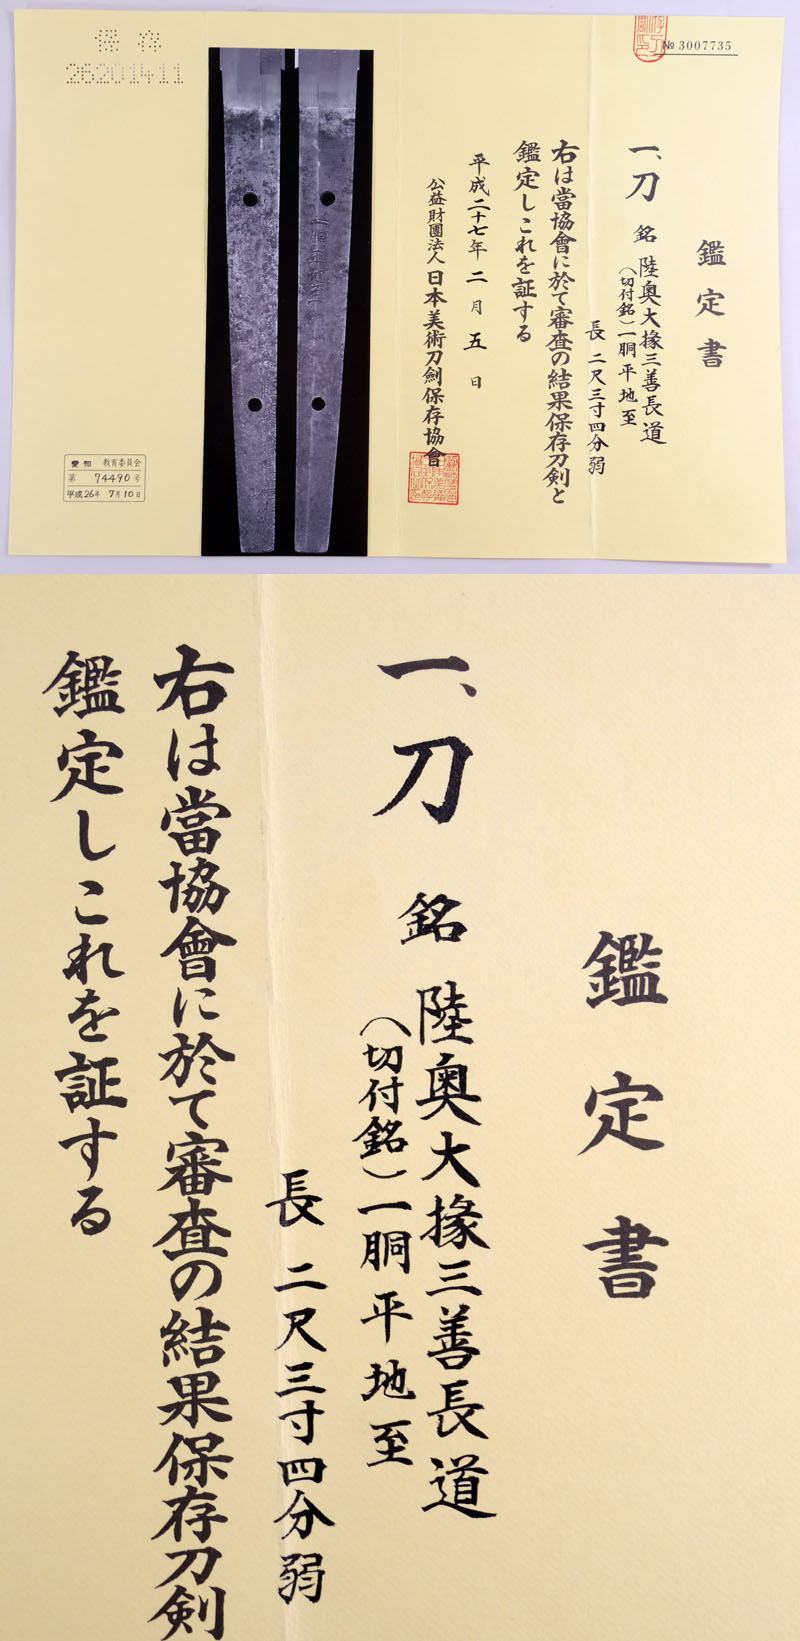 № 3007735
鑑定書
一、刀 銘 陸奥大掾三善長道
（切付銘）一胴平地至
長 二尺三寸四分弱
右は當協會に於て審査の結果保存刀剣と
鑑定しこれを証する
平成二十七年二月五日
公益財團法人日本美術刀劍保存協會
保存
26201411
愛知 教育委員会
第 74490 号
平成26年 7月10日
鑑定書
一、刀 銘 陸奥大掾三善長道
（切付銘）一胴平地至
長 二尺三寸四分弱
右は當協會に於て審査の結果保存刀剣
鑑定しこれを証する